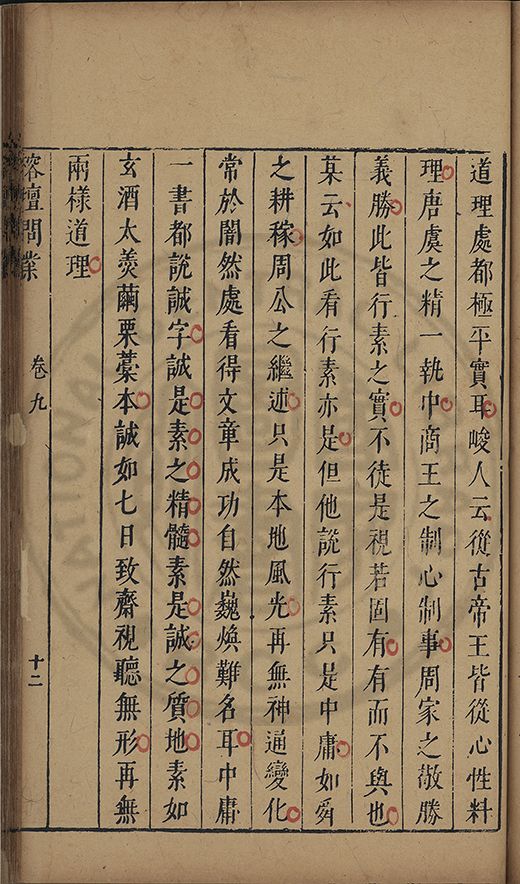 道理處都極平實耳峻人云從古帝王皆從心性料
理唐虞之精一執中商王之制心制事周家之敬勝
義勝此皆行素之實不徒是視若固有有而不與也
某云如此看行素亦是但他說行素只是中庸如舜
之耕稼周公之繼述只是本地風光再無神通變化
常於闇然處看得文章成功自然巍煥難名耳中庸
一書都說誠字誠是素之精髓素是誠之質地素如
玄酒太羹繭栗藁本誠如七日致齋視聽無形再無
兩樣道理
榕壇問業
卷九
十二